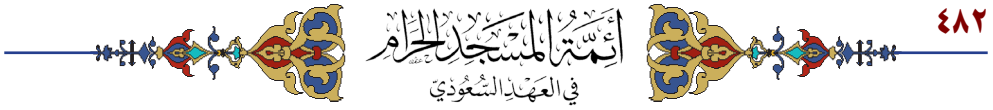 ٤٨٢
أَئِمَّةُ المَسْجِدِ الحَرَامِ
في العَهْدِ السُّعُوديّ